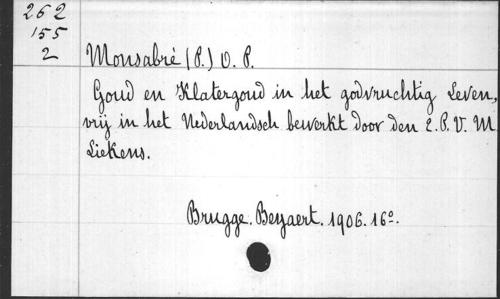 262
155
2
Monsabré (P.) O. P.
Goud en Klatergoud in het godvruchtig Leven,
vrij in het Nederlandsch bewerkt door den E. P. V. M
Liekens.
Brugge. Beyaert. 1906. 16º.